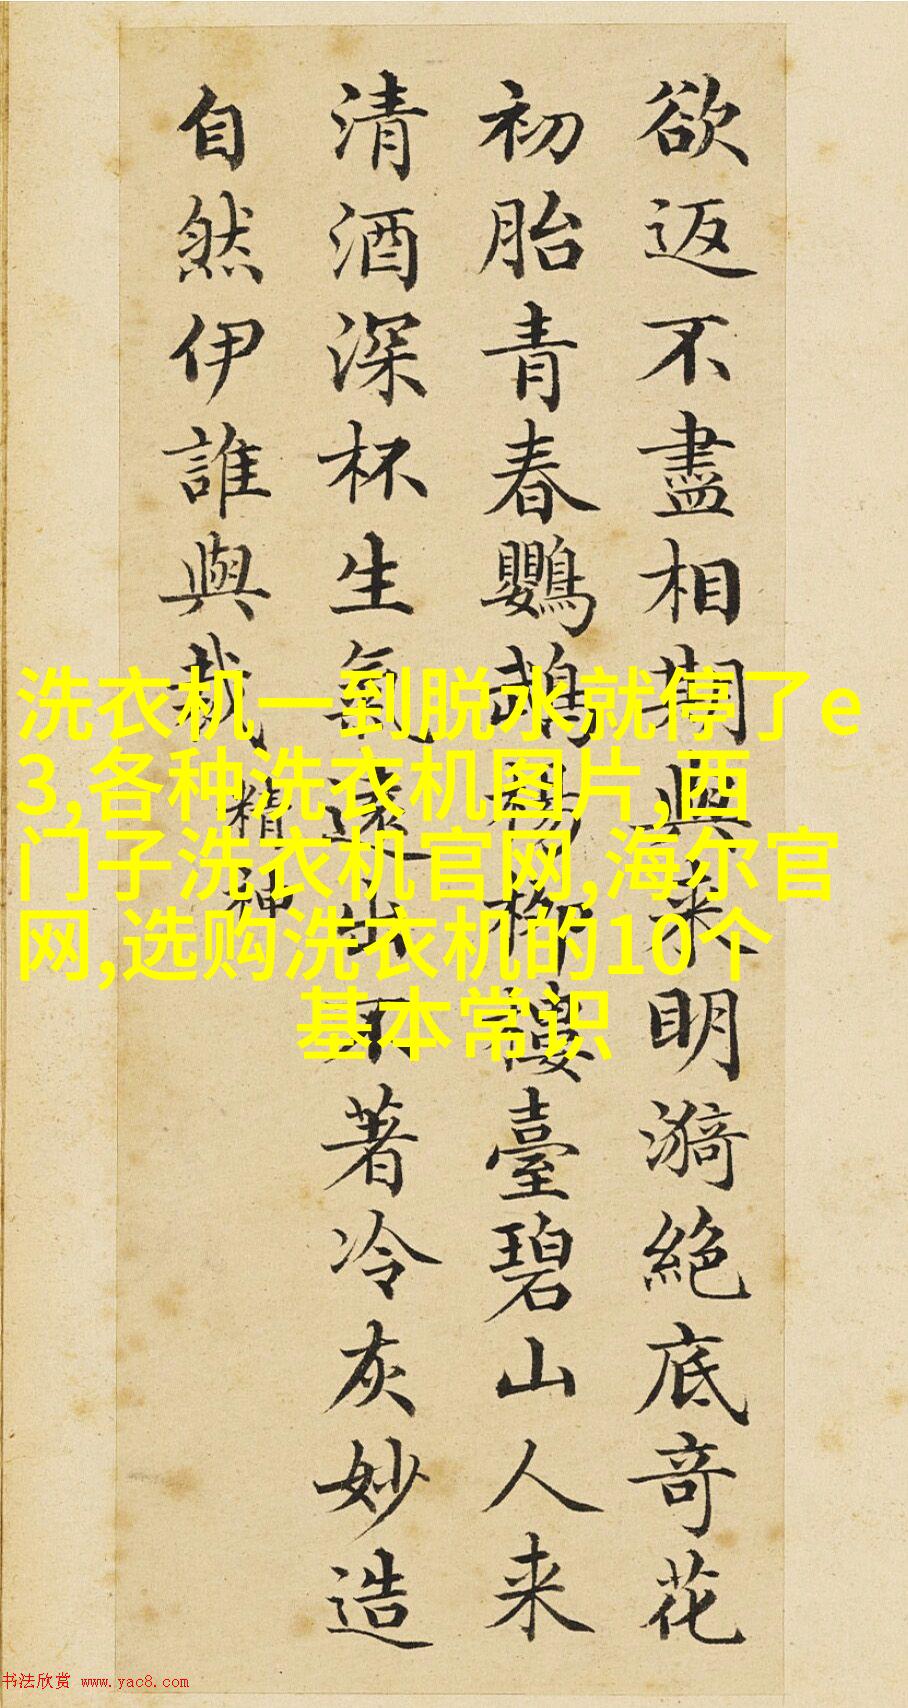 欲返不盡相期與来明漪絕底奇花
初胎青春鸚鵡楊柳樓臺碧山人来
清酒深杯生氣遠出不著冷灰妙造
自然伊誰與裁
精神
洗衣机一到脱水就停了e
3,各种洗衣机图片,西
门子洗衣机官网,海尔官
网,选购洗衣机的10个
基本常识
书法欣赏 www.yac8.com